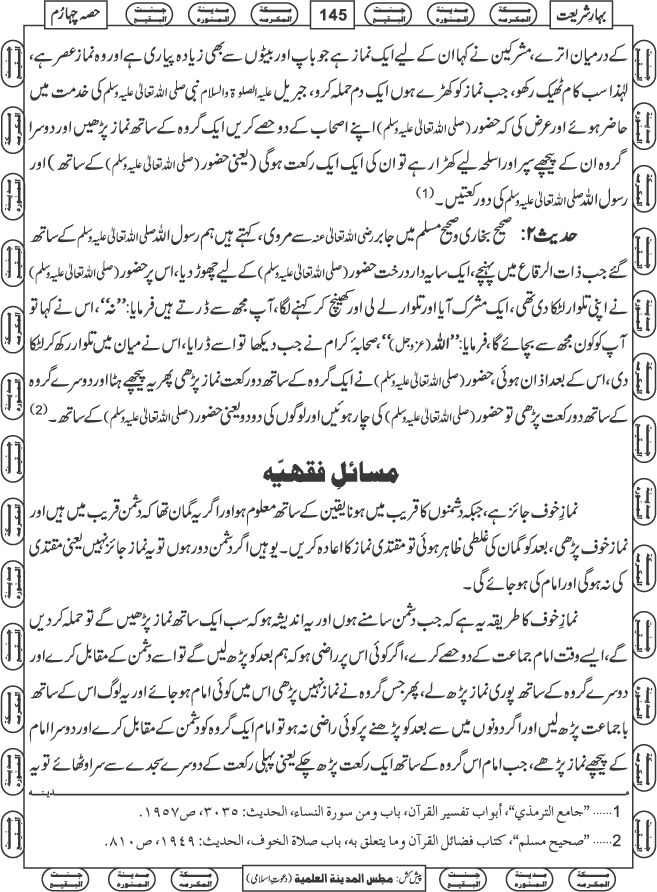 بہارِ شریعت
145
حصہ چہارم
کے درمیان اترے، مشرکین نے کہا ان کے لیے ایک نماز ہے جو باپ اور بیٹوں سے بھی زیادہ پیاری ہے اور وہ نماز عصر ہے،
لہٰذا سب کام ٹھیک رکھو، جب نماز کو کھڑے ہوں ایک دم حملہ کرو، جبریل علیہ الصلوۃ والسلام نبی صلی اللہ تعالیٰ علیہ وسلم کی خدمت میں
حاضر ہوئے اور عرض کی کہ حضور (صلی اللہ تعالیٰ علیہ وسلم) اپنے اصحاب کے دو حصے کریں ایک گروہ کے ساتھ نماز پڑھیں اور دوسرا
گروہ ان کے پیچھے سپر اور اسلحہ لیے کھڑا رہے تو ان کی ایک ایک رکعت ہوگی (یعنی حضور (صلی اللہ تعالیٰ علیہ وسلم) کے ساتھ) اور
رسول اللہ صلی اللہ تعالیٰ علیہ وسلم کی دو رکعتیں۔ (1)
حدیث ۲: صحیح بخاری و صحیح مسلم میں جابر رضی اللہ تعالیٰ عنہ سے مروی، کہتے ہیں ہم رسول اللہ صلی اللہ تعالیٰ علیہ وسلم کے ساتھ
گئے جب ذات الرقاع میں پہنچے، ایک سایہ دار درخت حضور (صلی اللہ تعالیٰ علیہ وسلم) کے لیے چھوڑ دیا، اس پر حضور (صلی اللہ تعالیٰ علیہ وسلم)
نے اپنی تلوار لٹکا دی تھی، ایک مشرک آیا اور تلوار لے لی اور کھینچ کر کہنے لگا، آپ مجھ سے ڈرتے ہیں فرمایا: ”نہ“، اس نے کہا تو
آپ کو کون مجھ سے بچائے گا، فرمایا: ”اللہ (عزوجل)“، صحابۂ کرام نے جب دیکھا تو اسے ڈرایا، اس نے میان میں تلوار رکھ کر لٹکا
دی، اس کے بعد اذان ہوئی، حضور (صلی اللہ تعالیٰ علیہ وسلم) نے ایک گروہ کے ساتھ دو رکعت نماز پڑھی پھر یہ پیچھے ہٹا اور دوسرے گروہ
کے ساتھ دو رکعت پڑھی تو حضور (صلی اللہ تعالیٰ علیہ وسلم) کی چار ہوئیں اور لوگوں کی دو دو یعنی حضور (صلی اللہ تعالیٰ علیہ وسلم) کے ساتھ۔ (2)
مسائلِ فقهیّه
نمازِ خوف جائز ہے، جبکہ دشمنوں کا قریب میں ہونا یقین کے ساتھ معلوم ہو اور اگر یہ گمان تھا کہ دشمن قریب میں ہیں اور
نمازِ خوف پڑھی، بعد کو گمان کی غلطی ظاہر ہوئی تو مقتدی نماز کا اعادہ کریں۔ یوہیں اگر دشمن دور ہوں تو یہ نماز جائز نہیں یعنی مقتدی
کی نہ ہوگی اور امام کی ہو جائے گی۔
نمازِ خوف کا طریقہ یہ ہے کہ جب دشمن سامنے ہوں اور یہ اندیشہ ہو کہ سب ایک ساتھ نماز پڑھیں گے تو حملہ کر دیں
گے، ایسے وقت امام جماعت کے دو حصے کرے، اگر کوئی اس پر راضی ہو کہ ہم بعد کو پڑھ لیں گے تو اسے دشمن کے مقابل کرے اور
دوسرے گروہ کے ساتھ پوری نماز پڑھ لے، پھر جس گروہ نے نماز نہیں پڑھی اس میں کوئی امام ہو جائے اور یہ لوگ اس کے ساتھ
باجماعت پڑھ لیں اور اگر دونوں میں سے بعد کو پڑھنے پر کوئی راضی نہ ہو تو امام ایک گروہ کو دشمن کے مقابل کرے اور دوسرا امام
کے پیچھے نماز پڑھے، جب امام اس گروہ کے ساتھ ایک رکعت پڑھ چکے یعنی پہلی رکعت کے دوسرے سجدے سے سر اوٹھائے تو یہ
مدینہ
1...... ”جامع الترمذي“، أبواب تفسير القرآن، باب ومن سورة النساء، الحديث: ٣٠٣٥، ص١٩٥٧.
2...... ”صحيح مسلم“، كتاب فضائل القرآن وما يتعلق به، باب صلاة الخوف، الحديث: ١٩٤٩، ص٨١٠.
پیش کش: مجلس المدينة العلمية (دعوتِ اسلامی)